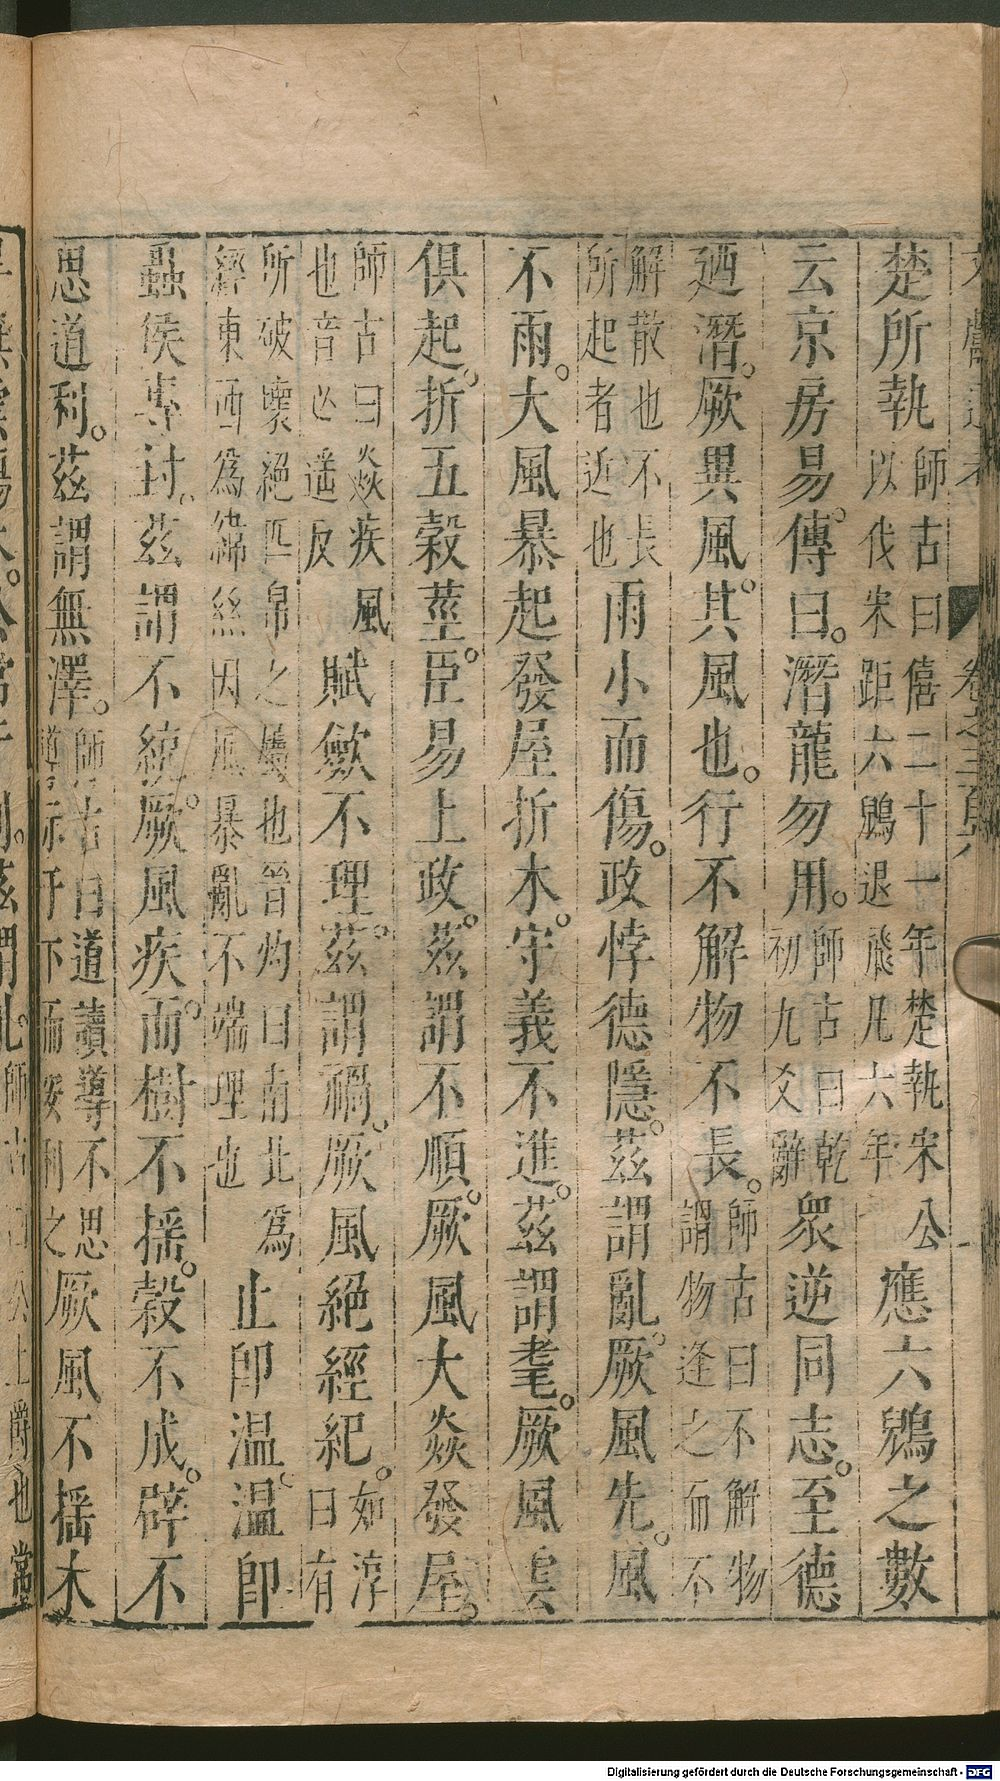 楚所執師古曰僖二十一年楚執宋公以伐宋距六鶂退飛凡六年應六鶂之數
云京房易傳曰潛龍勿用師古曰乾初九爻辭衆逆同志至德
廼潛厥異風其風也行不解物不長師古曰不解物謂物逢之而不
解散也不長所起者近也雨小而傷政悖德隱茲謂亂厥風先風
不雨大風暴起發屋折木守義不進茲謂耄厥風與雲
俱起折五穀莖臣易上政茲謂不順厥風大焱發屋
師古曰焱疾風也音必遥反賦斂不理茲謂禍厥風絕經紀如淳曰有
所破壞絕匹帛之屬也晉灼曰南北爲經東西爲緯絲因風暴亂不端理也止卽温温卽
蟲侯專封茲謂不統厥風疾而樹不揺穀不成辟不
思道利茲謂無澤師古曰道讀導不思導示于下而安利之厥風不揺木
Digitalisierung gefördert durch die Deutsche Forschungsgemeinschaft - DFG